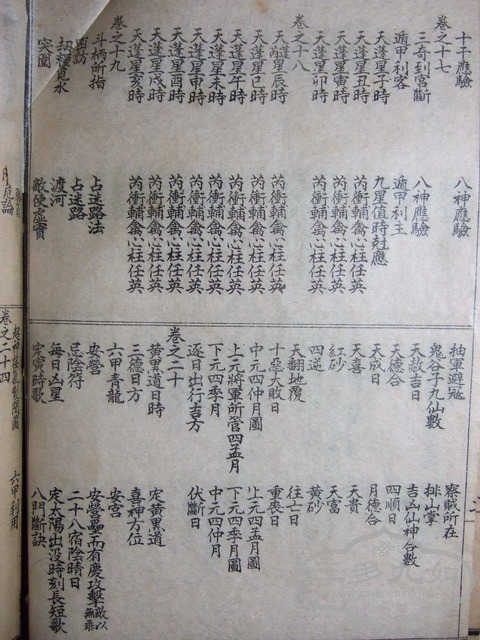 十干應驗 八神應驗
卷之十七
三奇到宮斷 八神應驗
遁甲利客 遁甲利主
天蓬星子時 九星值時尅應
天蓬星丑時 芮衝輔禽心柱任英
天蓬星寅時 芮衝輔禽心柱任英
天蓬星卯時 芮衝輔禽心柱任英
卷之十八
天蓬星辰時 芮衝輔禽心柱任英
天蓬星巳時 芮衝輔禽心柱任英
天蓬星午時 芮衝輔禽心柱任英
天蓬星未時 芮衝輔禽心柱任英
天蓬星申時 芮衝輔禽心柱任英
天蓬星酉時 芮衝輔禽心柱任英
天蓬星戌時 芮衝輔禽心柱任英
天蓬星亥時 芮衝輔禽心柱任英
卷之十九
斗柄所指 占迷路法
密訪 占迷路
劫糧覓水 渡河
突圍 敵使虛實
抽軍避寇 察賊所在
鬼谷子九仙數 排山掌
天赦吉日 吉凶仙神合數
天德合 四順日
天成日 月德合
天喜 天貴
紅砂 天富
四逆 黃砂
天翻地覆 往亡日
十惡大敗日 重喪日
中元四仲月圖 上元四孟月圖
上元將軍所管四孟月 下元四季月圖
下元四季月 中元四仲月
逐日出行吉方 伏斷日
卷之二十
黃黑道日時 定黃黑道
三德日方 喜神方位
六甲青龍 安宮
安營 安營壘而有慶攻擊敵以無乖
忌陰符 二十八宿陰晴日
每日凶星 定太陽出沒時刻長短歌
定寅時歌 八門斷訣
卷之二十四 六甲利用